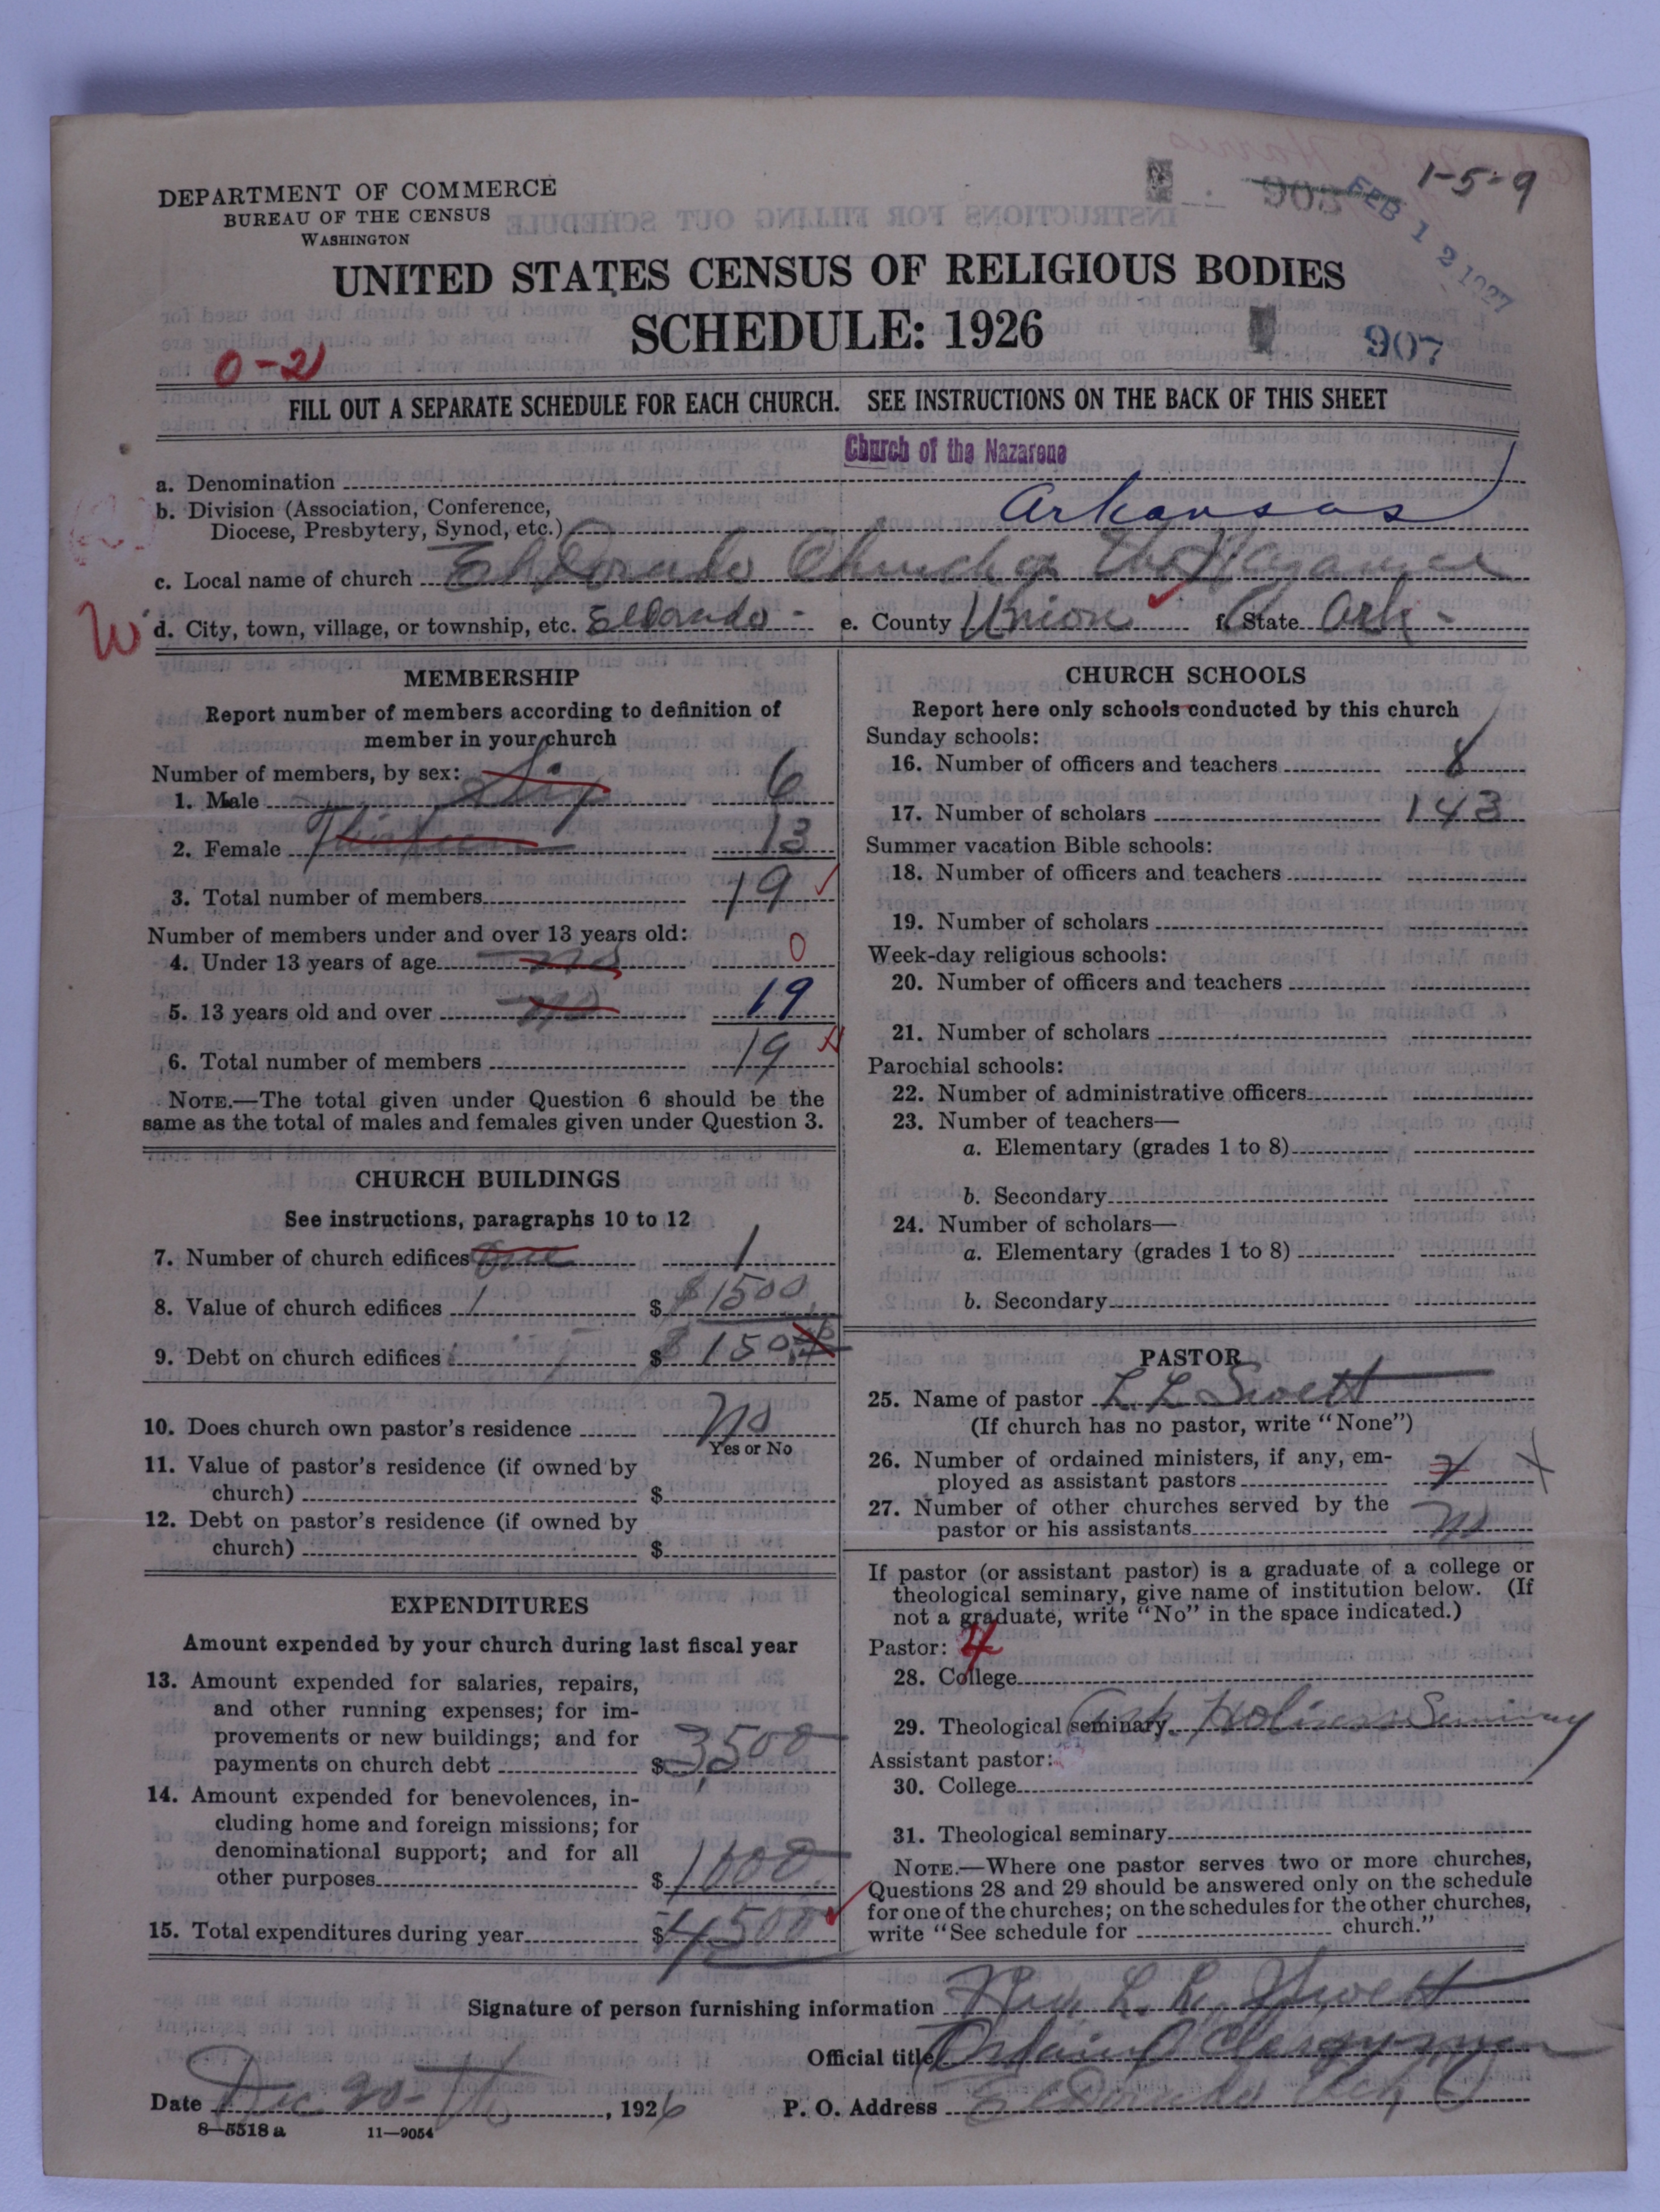 DEPARTMENT OF COMMERCE
BUREAU OF THE CENSUS
WASHINGTON
1-5-9
FEB 12 1927
UNITED STATES CENSUS OF RELIGIOUS BODIES
SCHEDULE: 1926
907
0-21
FILL OUT A SEPARATE SCHEDULE FOR EACH CHURCH. SEE INSTRUCTIONS ON THE BACK OF THIS SHEET
Church of the Nazarene
a. Denomination
b. Division (Association, Conference,
Diocese, Presbytery, Synod, etc.) Arkansas
c. Local name of church El Dorado Church of the Nazarene
W d. City, town, village, or township, etc. El Dorado - e. County Union f. State Ark -
MEMBERSHIP
Report number of members according to definition of
member in your church
Number of members, by sex:
1. Male Six 6
2. Female Thirteen 13
3. Total number of members 19
Number of members under and over 13 years old:
4. Under 13 years of age no 0
5. 13 years old and over no 19
6. Total number of members 19
NOTE.—The total given under Question 6 should be the
same as the total of males and females given under Question 3.
CHURCH BUILDINGS
See instructions, paragraphs 10 to 12
7. Number of church edifices One 1
8. Value of church edifices 1 $ $1500
9. Debt on church edifices $ $150
10. Does church own pastor's residence No
Yes or No
11. Value of pastor's residence (if owned by
church) $
12. Debt on pastor's residence (if owned by
church) $
EXPENDITURES
Amount expended by your church during last fiscal year
13. Amount expended for salaries, repairs,
and other running expenses; for im-
provements or new buildings; and for
payments on church debt $ 3,500
14. Amount expended for benevolences, in-
cluding home and foreign missions; for
denominational support; and for all
other purposes $ 1000
15. Total expenditures during year $ 4500
CHURCH SCHOOLS
Report here only schools conducted by this church
Sunday schools:
16. Number of officers and teachers 8
17. Number of scholars 143
Summer vacation Bible schools:
18. Number of officers and teachers
19. Number of scholars
Week-day religious schools:
20. Number of officers and teachers
21. Number of scholars
Parochial schools:
22. Number of administrative officers
23. Number of teachers—
a. Elementary (grades 1 to 8)
b. Secondary
24. Number of scholars—
a. Elementary (grades 1 to 8)
b. Secondary
PASTOR
25. Name of pastor L. L. Swett
(If church has no pastor, write "None")
26. Number of ordained ministers, if any, em-
ployed as assistant pastors
27. Number of other churches served by the
pastor or his assistants No
If pastor (or assistant pastor) is a graduate of a college or
theological seminary, give name of institution below. (If
not a graduate, write "No" in the space indicated.)
Pastor: 4
28. College
29. Theological seminary Ark Holiness Seminary
Assistant pastor:
30. College
31. Theological seminary
NOTE.—Where one pastor serves two or more churches,
Questions 28 and 29 should be answered only on the schedule
for one of the churches; on the schedules for the other churches,
write "See schedule for church."
Signature of person furnishing information Rev. L. L. Swett
Official title Ordained Clergyman
Date Dec 20th, 1926 P. O. Address El Dorado Ark
8—5518 a 11—9054